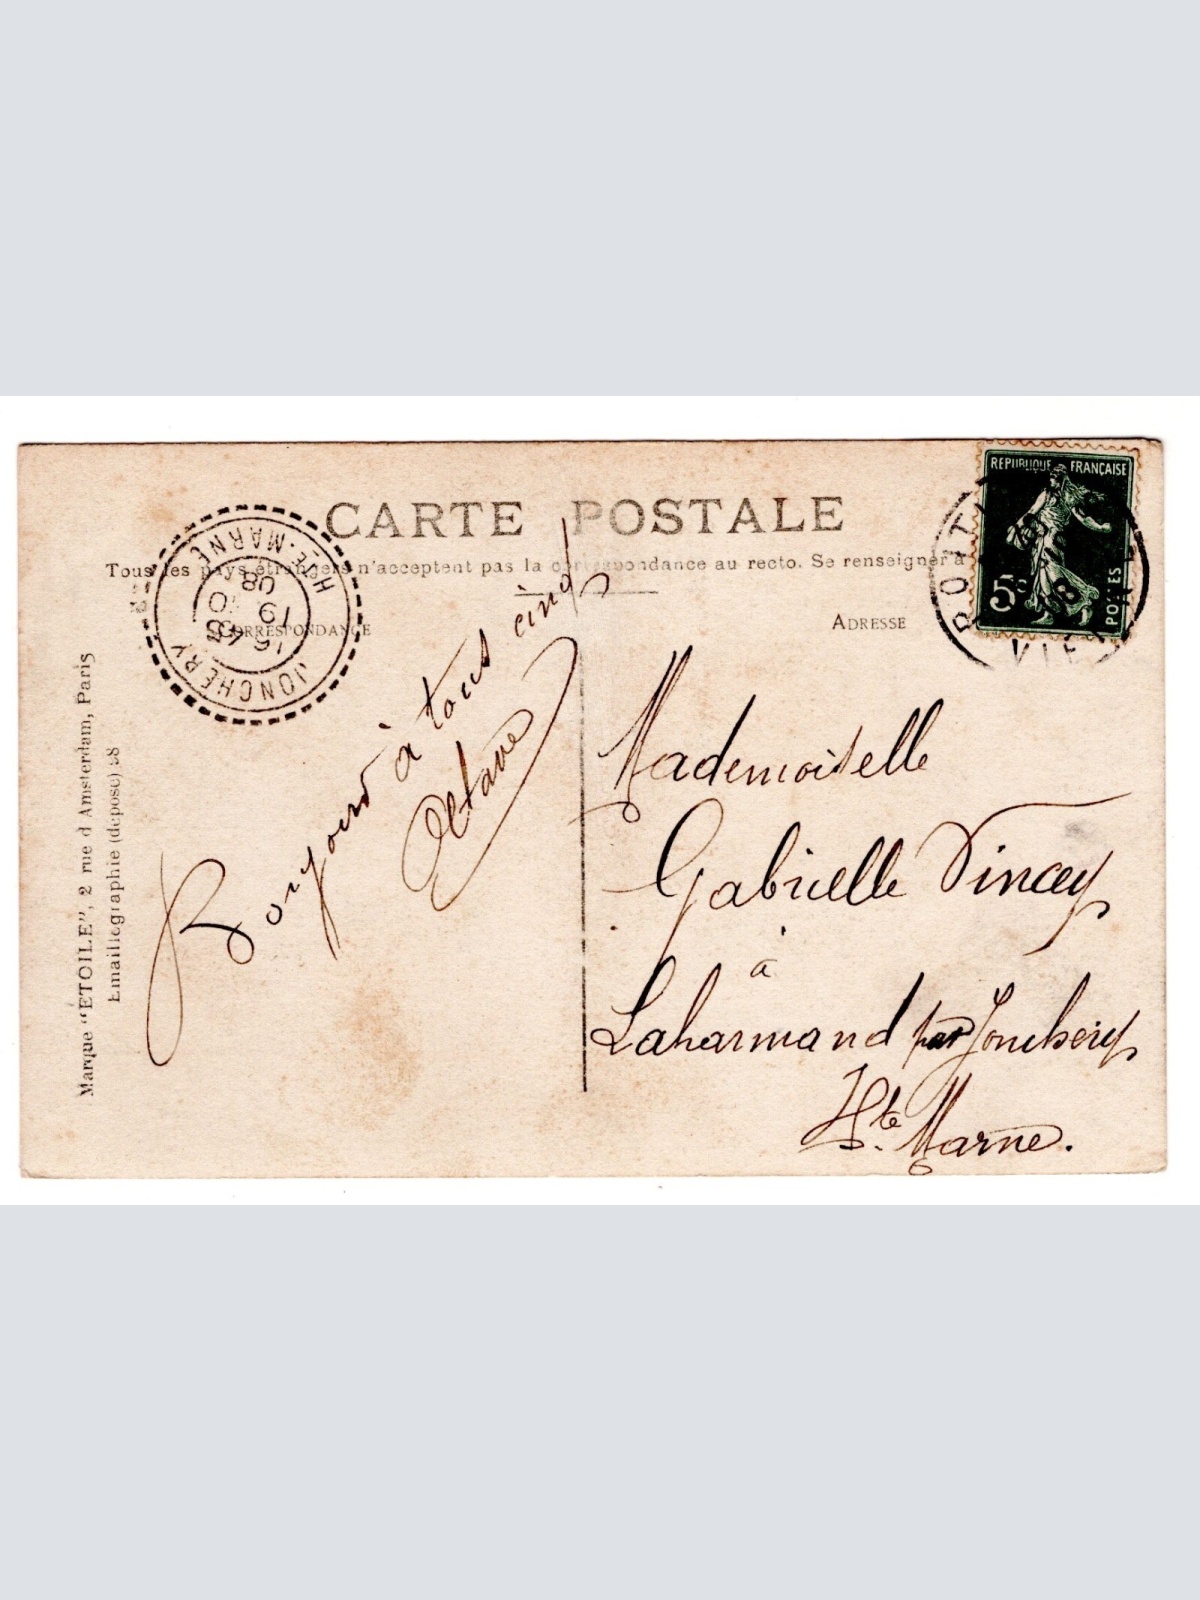 CARTE POSTALE
Tous les pays étrangers n'acceptent pas la correspondance au recto. Se renseigner à
CORRESPONDANCE
ADRESSE
REPUBLIQUE FRANÇAISE
5c
POSTES
POITIERS
VIENNE
JONCHERY
HTE-MARNE
19
10
08
Marque "ETOILE", 2 rue d'Amsterdam, Paris
Emaillographie (déposé) 58
Bonjour à tous cinq
Octave
Mademoiselle
Gabrielle Vincey
à
Laharmand par Jonchery
Hte Marne.